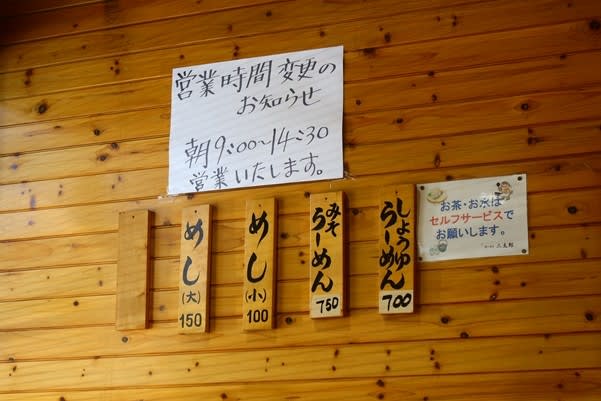 営業時間変更の
お知らせ
朝9:00~14:30
営業いたします。
しょうゆ
らーめん
700
みそ
らーめん
750
めし
(小)
100
めし
(大)
150
お茶・お水は
セルフサービスで
お願いします。